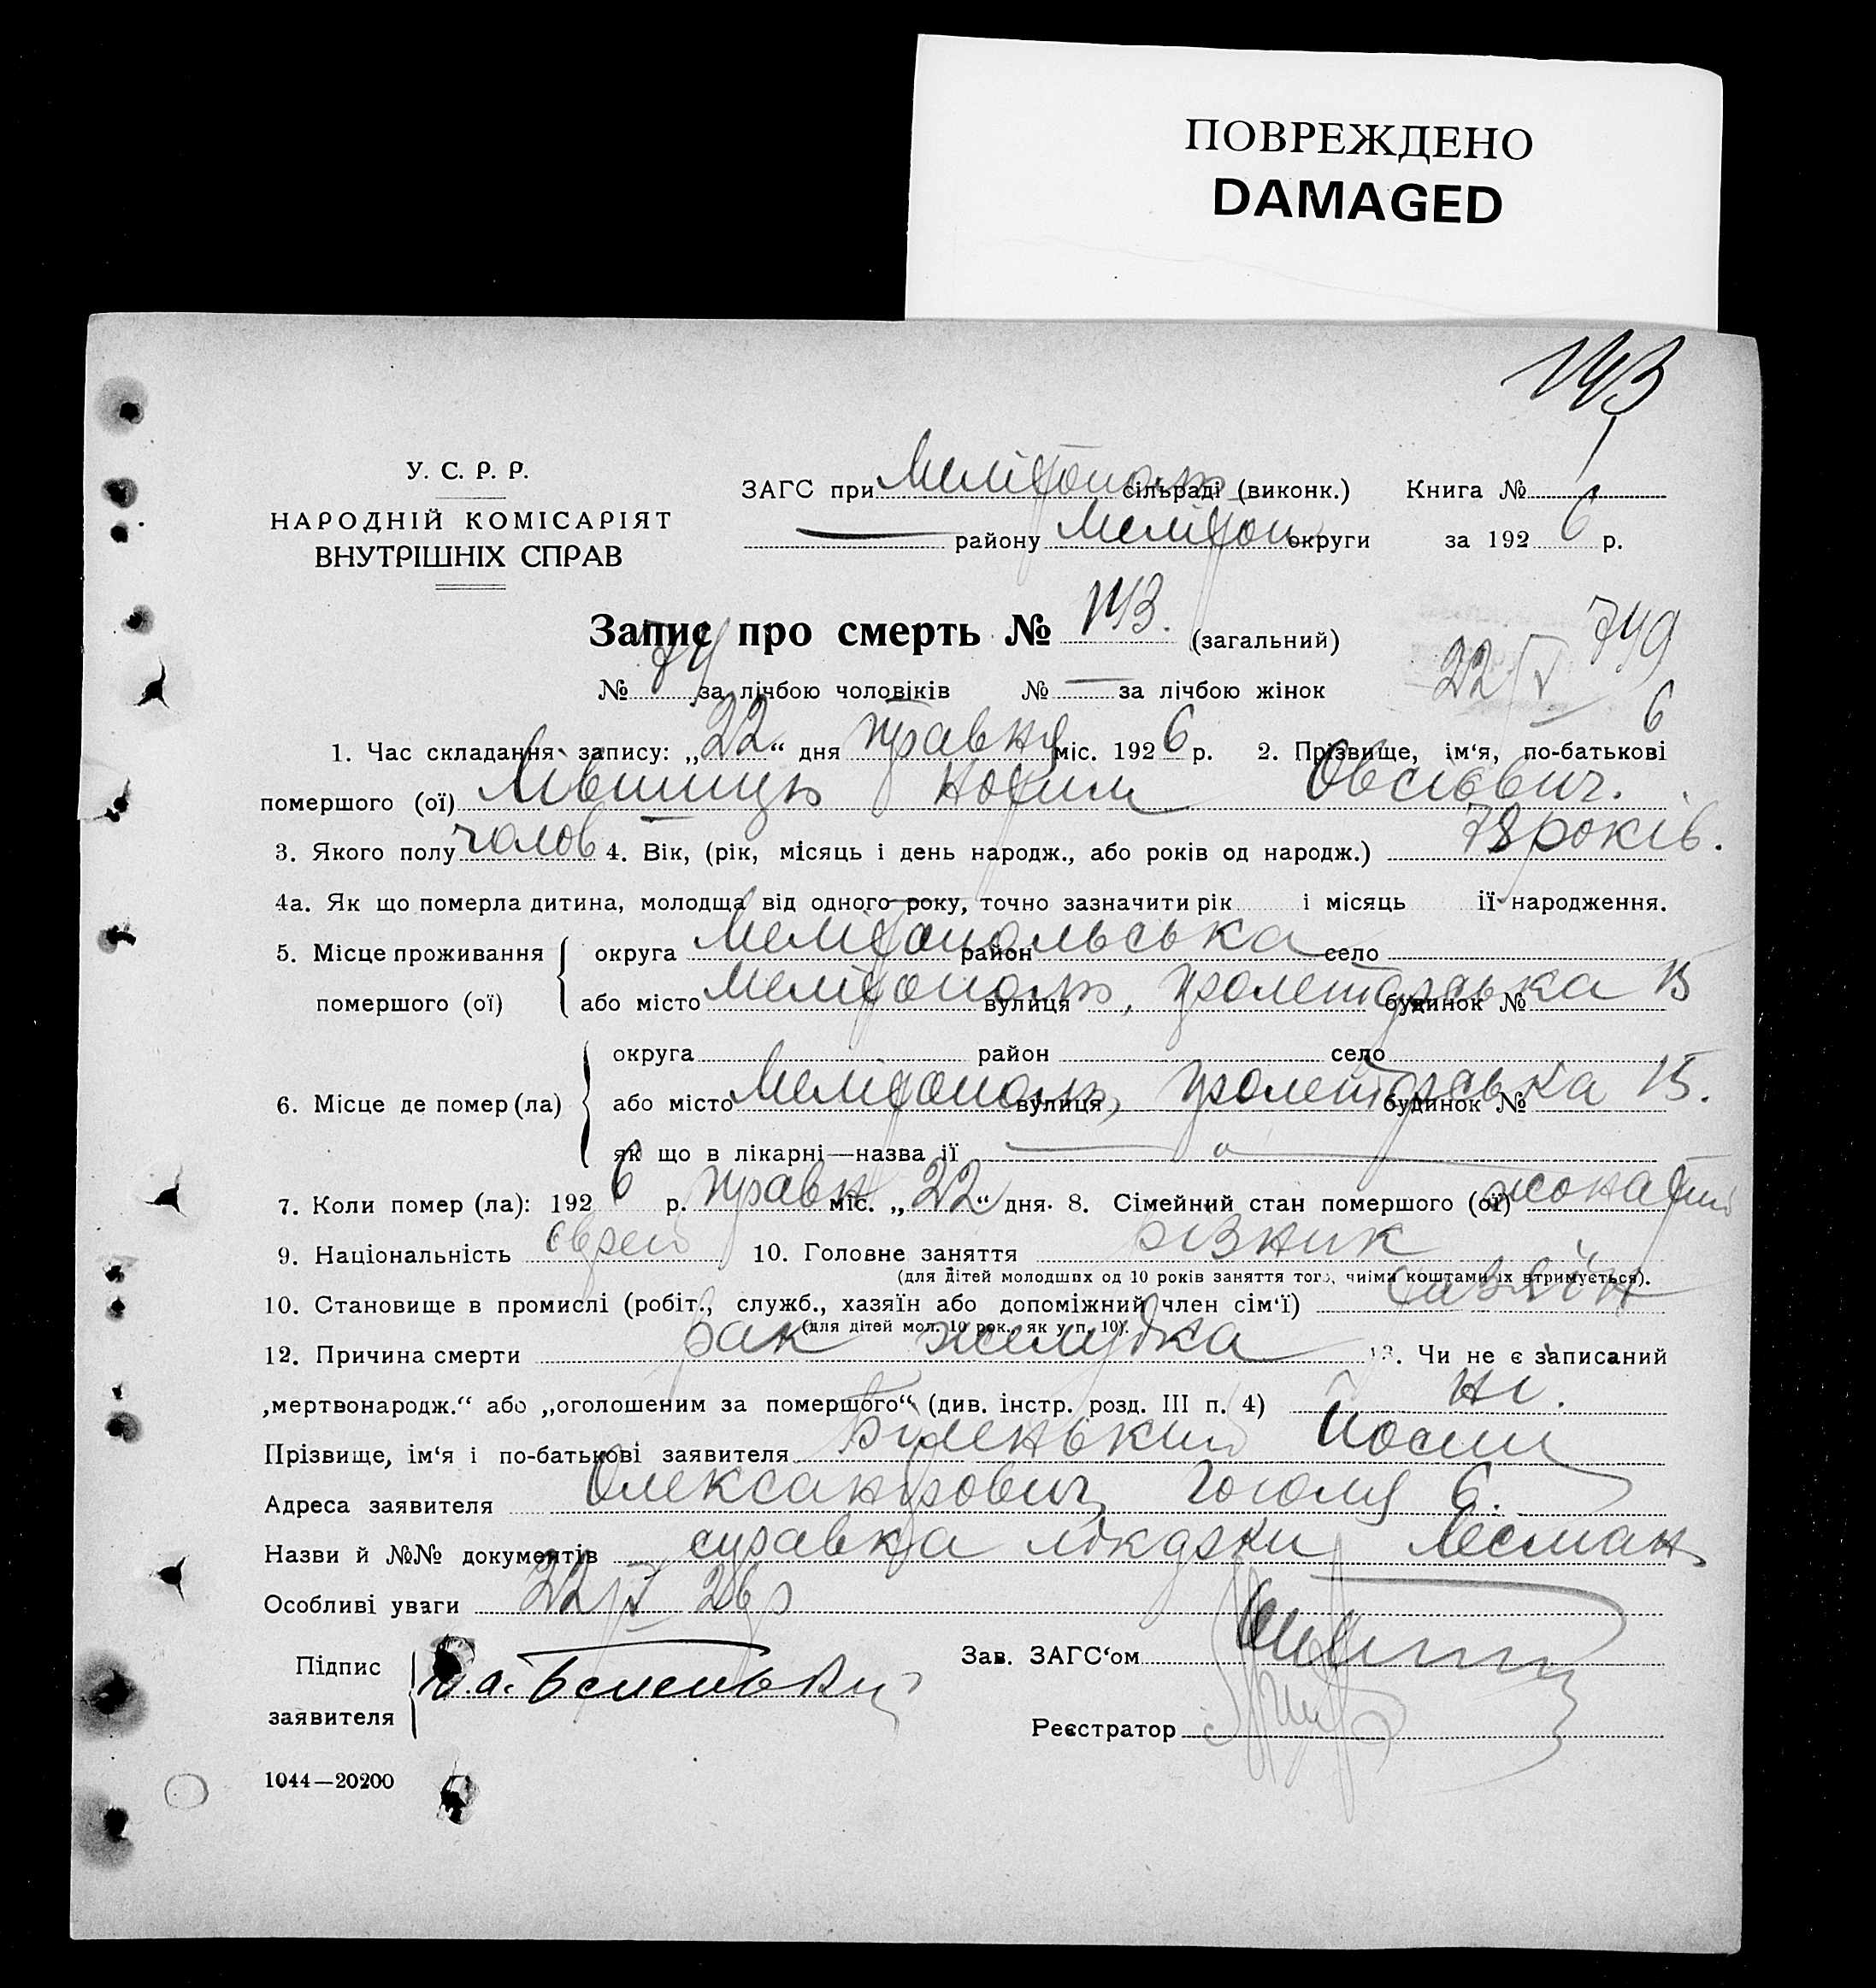 ПОВРЕЖДЕНО
DAMAGED
143
У. С. Р. Р.
НАРОДНІЙ КОМІСАРІЯТ
ВНУТРІШНІХ СПРАВ
ЗАГС при Мелітополь сільраді (виконк.) Книга № 1
— району Меліпоп округи за 192 6 р.
Запис про смерть № 143. (загальний)
749
№ 74 за лічбою чоловіків № — за лічбою жінок
22/V 6
1. Час складання запису: „22“ дня травня міс. 192 6 р. 2. Прізвище, ім‘я, по-батькові
помершого (ої) Лівшиць Нохим Овсіевич.
3. Якого полу чолов 4. Вік, (рік, місяць і день народж., або років од народж.) 78 років.
4а. Як що померла дитина, молодща від одного року, точно зазначити рік і місяць її народження.
5. Місце проживання помершого (ої) округа Мелітопольська район село
або місто Мелітополь, вулиця Пролетарська будинок № 15
6. Місце де помер (ла) округа район село
або місто Мелітополь, вулиця Пролетарська будинок № 15.
як що в лікарні—назва її —
7. Коли помер (ла): 192 6 р. травн міс. „22“ дня. 8. Сімейний стан помершого (ої) жонатий
9. Національність єврей 10. Головне заняття різник
(для дітей молодших од 10 років заняття того, чиїми коштами їх втримується).
10. Становище в промислі (робіт., служб., хазяїн або допоміжний член сім‘ї) хазяїн
(для дітей мол. 10 рок., як у п. 10).
12. Причина смерти рак желудка 13. Чи не є записаний
„мертвонародж.“ або „оголошеним за помершого“ (див. інстр. розд. III п. 4) ні.
Прізвище, ім‘я і по-батькові заявителя Біленький Йосип
Адреса заявителя Олександрович, Гоголя 6.
Назви й №№ документів справка лікаря
Особливі уваги 22/V 26 р
Підпис
заявителя
Зав. ЗАГС‘ом
Реєстратор
1044—20200